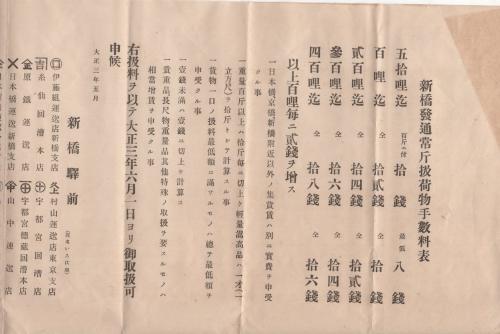 新橋發通常斤扱荷物手數料表
五拾哩迄 百斤ニ付 八錢 最低 八錢
百哩迄 仝 拾貳錢 仝 拾錢
貳百哩迄 仝 拾四錢 仝 拾貳錢
參百哩迄 仝 拾六錢 仝 拾四錢
四百哩迄 仝 拾八錢 仝 拾六錢
以上百哩每ニ貳錢ヲ增ス
一日本橋京橋新橋附近以外ノ集貨賃ハ別ニ實費ヲ申受
クル事
一重量百斤以上ハ拾斤每ニ切上ケ輕量嵩高品ハ一才(二
立方尺)ヲ拾斤トシテ計算スル事
一貨物一口ノ扱料最低額ニ滿タサルモノハ總テ最低額ヲ
申受クル事
一壹錢未滿ハ壹錢ニ切上ケ計算ス
一貴重品長尺物重量品其他特殊ノ取扱ヲ要スルモノハ
相當增賃ヲ申受クル事
右扱料ヲ以テ大正三年六月一日ヨリ御取扱可
申候
大正三年五月
新橋驛前
伊藤組運送店新橋支店
村山運送店東京支店
糸仙回漕店
宇都宮回漕店
原鐵運送店
宇都宮德藏回漕本店
日本橋運送新橋支店
山中運送店